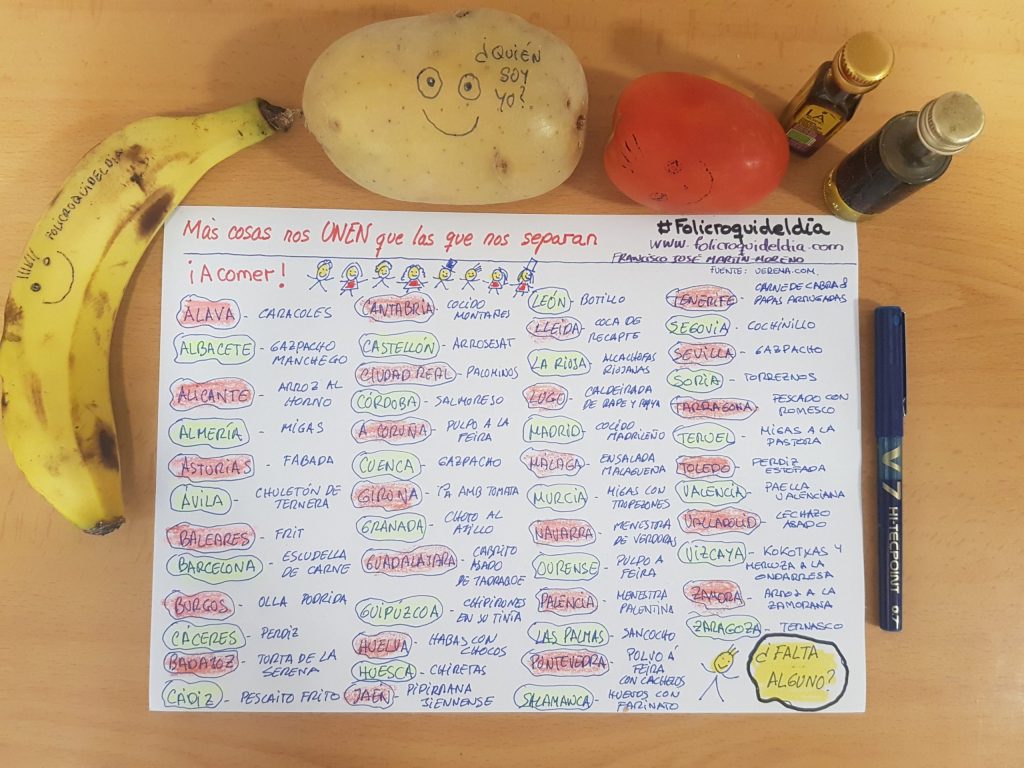 ¿QUIÉN
SOY
YO?
FOLICROQUIDELDIA
LA
Más cosas nos UNEN que las que nos separan
#Folicroquideldía
www.folicroquideldia.com
FRANCISCO JOSÉ MARTÍN MORENO
FUENTE: VEREMA.COM.
¡A comer!
ÁLAVA - CARACOLES
ALBACETE - GAZPACHO
MANCHEGO
ALICANTE - ARROZ AL
HORNO
ALMERÍA - MIGAS
ASTURIAS - FABADA
ÁVILA - CHULETÓN DE
TERNERA
BALEARES - FRIT
BARCELONA - ESCUDELLA
DE CARNE
BURGOS - OLLA PODRIDA
CÁCERES - PERDIZ
BADAJOZ - TORTA DE LA
SERENA
CÁDIZ - PESCAITO FRITO
CANTABRIA - COCIDO
MONTAÑES
CASTELLÓN - ARROSEJAT
CIUDAD REAL - PALOMINOS
CÓRDOBA - SALMOREJO
A CORUÑA - PULPO A LA
FEIRA
CUENCA - GAZPACHO
GIRONA - PA AMB TOMATA
GRANADA - CHOTO AL
AJILLO
GUADALAJARA - CABRITO
ASADO
DE TADRAQUE
GUIPÚZCOA - CHIPIRONES
EN SU TINTA
HUELVA - HABAS CON
CHOCOS
HUESCA - CHIRETAS
JAÉN - PIPIRRANA
JIENNENSE
LEÓN - BOTILLO
LLEIDA - COCA DE
RECAPTE
LA RIOJA - ALCACHOFAS
RIOJANAS
LUGO - CALDEIRADA
DE RAPE Y RAYA
MADRID - COCIDO
MADRILEÑO
MÁLAGA - ENSALADA
MALAGUEÑA
MURCIA - MIGAS CON
TROPEZONES
NAVARRA - MENESTRA
DE VERDURAS
OURENSE - PULPO A
FEIRA
PALENCIA - MENESTRA
PALENTINA
LAS PALMAS - SANCOCHO
PONTEVEDRA - POLVO Á
FEIRA
CON CACHELOS
SALAMANCA - HUEVOS CON
FARINATO
TENERIFE - CARNE DE CABRA &
PAPAS ARRUGADAS
SEGOVIA - COCHINILLO
SEVILLA - GAZPACHO
SORIA - TORREZNOS
TARRAGONA - PESCADO CON
ROMESCO
TERUEL - MIGAS A LA
PASTORA
TOLEDO - PERDIZ
ESTOFADA
VALENCIA - PAELLA
VALENCIANA
VALLADOLID - LECHAZO
ASADO
VIZCAYA - KOKOTXAS Y
MERLUZA A LA
ONDARRESA
ZAMORA - ARROZ A LA
ZAMORANA
ZARAGOZA - TERNASCO
¿FALTA
ALGUNO?
V7 HI-TECPOINT 0.7